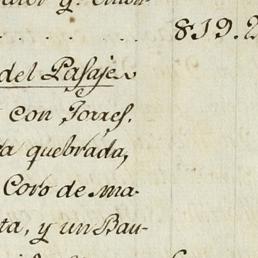 819.2
del Pasaje
con Torres.
a quebrada,
Coro de ma-
ta, y un Bau-